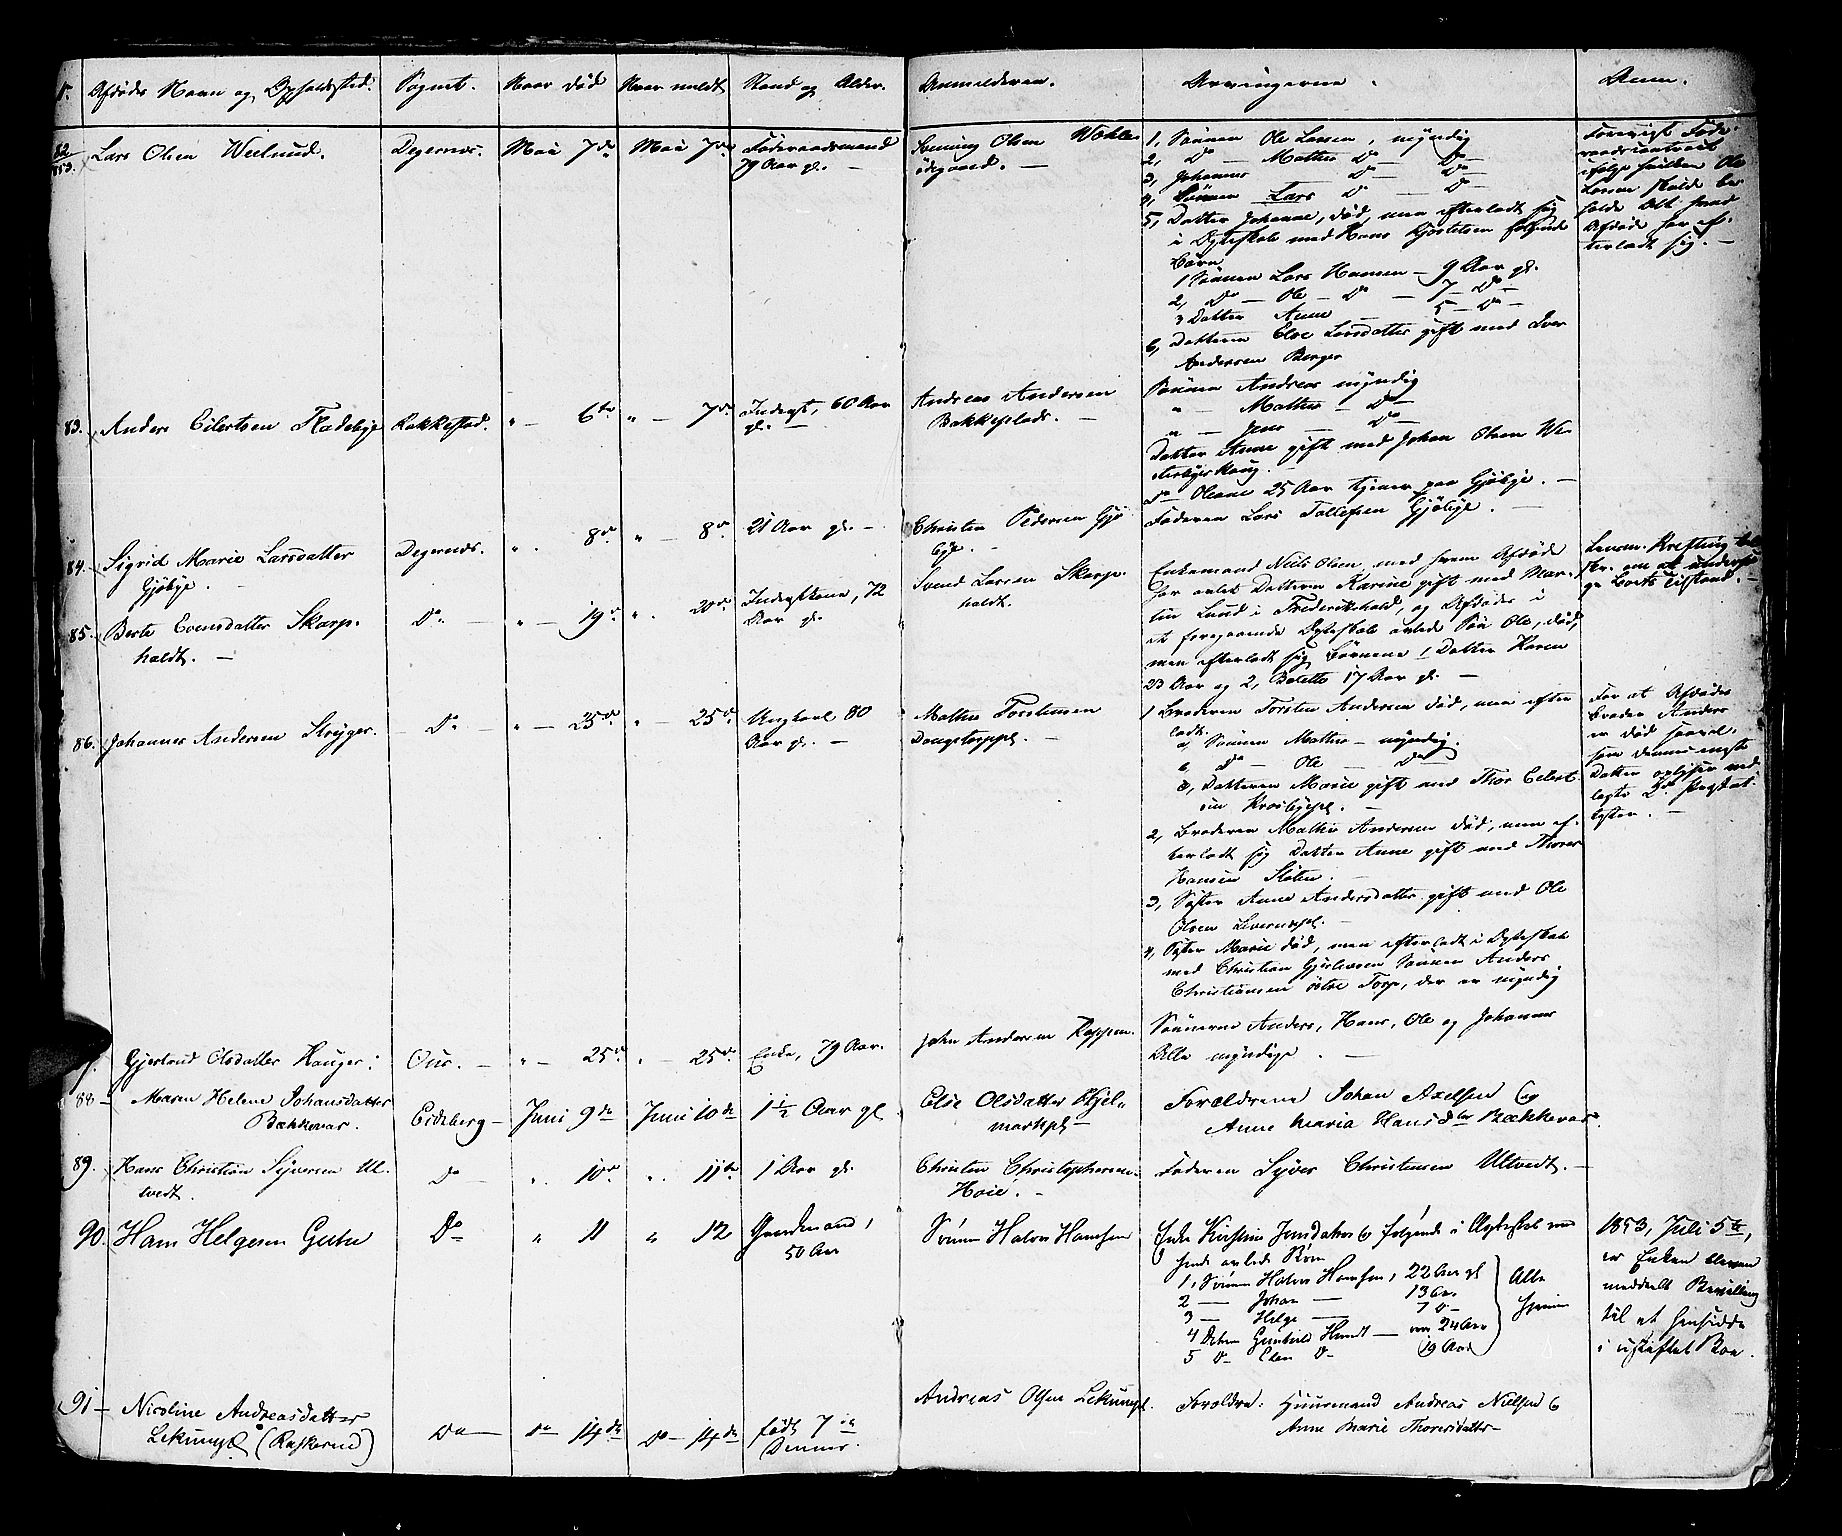 Afdødes Navn og Opholdssted.
Sognet.
Naar død
Naar meldt
Stand og Alder.
Anmelderen.
Arvingerne.
Anm.
82
Lars Olsen
Degernes.
Mai 7de
Mai 7de
Føderaadsmand
79 Aar gl. —
Olsen
ødegaard. —
1, Sønnen Ole Larsen, myndig
2, Do — Mathis Do — Do —
3, Johannes Do — Do —
4, Sønnen Lars Do — Do —
5, Datter Johanne, død, men efterladt sig
i Egteskab med Hans Kjostelsen følgende
Børn
1 Sønnen Lars Hansen — 9 Aar gl.
2, Do — Ole — Do — 7 — Do —
3 Datter Anne — 5 — Do —
6, Datteren Else Larsdatter gift med Iver
Andersen Berger
Ole
Larsen skulde be
holde Alt hvad
Afdøde har ef-
terladt sig. —
83.
Anders Eilertsen Fladebye
Rakkestad.
" — 6te
" — 7de
Inderst, 60 Aar
gl. —
Andreas Andersen
Bakkeplads. —
Sønnen Andreas myndig
" — Mathis — Do
" — Jens — Do —
Datter Anne gift med Johan Olsen
Do Oleane 25 Aar tjener paa Gjølbye. —
84.
Sigrid Marie Larsdatter
Gjølbye.
Degernes.
" . 8de
" — 8de
21 Aar gl. —
Christen Pedersen Gjøl
bye. —
Faderen Lars Tollefsen Gjølbye. —
Lensm. Krefting
om at undersø
ge Boets Tilstand. —
85.
Berte Evensdatter Skarp-
holdt. —
Do —
" — 19de
" . 20de
Inderstkone, 72
Aar gl.
Svend Larsen Skarp-
holdt.
Enkemand Niels Olsen, med hvem Afdøde
har avlet Datteren Karine gift med Mar-
tin Lund i Frederikshald, og Afdøde i
et foregaaende Egteskab avlede Søn Ole, død,
men efterladt sig Børnene 1 Datter Karen
23 Aar og 2, Bolette 17 Aar gl. —
86.
Johannes Andersen Stryger.
— Do —
" — 25de
" — 25de
Ungkarl 80
Aar gl. —
Mathis Torstensen
1 Broderen Torsten Andersen død, men efter
ladt:
a, Sønnen Mathis — myndig.
b, Do — Ole — Do
c, Datteren Marie gift med Thor Eilert-
sen
2, Broderen Mathis Andersen død, men ef-
terladt sig Datter Anne gift med Thorer
Hansen
3, Søster Anne Andersdatter gift med Ole
Olsen
4, Søster Marie død, men efterladt i Egteskab
med Christian Sønnen Anders
Christiansen østre Torp, der er myndig
For at Afdødes
Broder Anders
er død
Datter
Gjertrud Olsdatter Hauger.
Ous. —
" — 25de
" . 25de
Enke, 79 Aar.
John Andersen
Sønnerne Anders, Hans, Ole og Johannes
Alle myndige. —
88 —
Maren Helene Johansdatter
Bækkevar.
Eidsberg —
Juni 9de
Juni 10de
1½ Aar gl.
Else Olsdatter Hjel-
markpl —
Forældrene Johan Axelsen og
Anne Maria Hansdtr Bækkevar.
89.
Hans Christian Syversen Ul-
tvedt.
Do —
" . 10de
" . 11te
1 Aar gl.
Christen Christophersen
Hoie. —
Faderen Syver Christensen Ultvedt. —
90.
Hans Helgesen Gutu
Do
" 11
" 12
Gaardmand,
50 Aar
Sønnen Halvor Hansen
Enke Kirstine Jensdatter og følgende i Egteskab med
hende avlede Børn
1, Sønnen Halvor Hansen, 22 Aar gl
2 — Johan — 13 Aar.
3 — Helge — 7 D —
4 Datter Gunhild Hansdt — 24 Aar
5 D — Elen D — 19 Aar
Alle
hjemme
1853, Juli 5te,
er Enken
meddeelt Bevilling
til at hensidde
i uskiftet Boe.
91 —
Nicoline Andreasdatter
Lekumpl. (Raskerud)
Do —
Do 14de
Do — 14de
født 7de
Dennes.
Andreas Olsen Lekumpl.
Forældre: Huusmand Andreas Nielsen &
Anne Marie Thoresdatter —